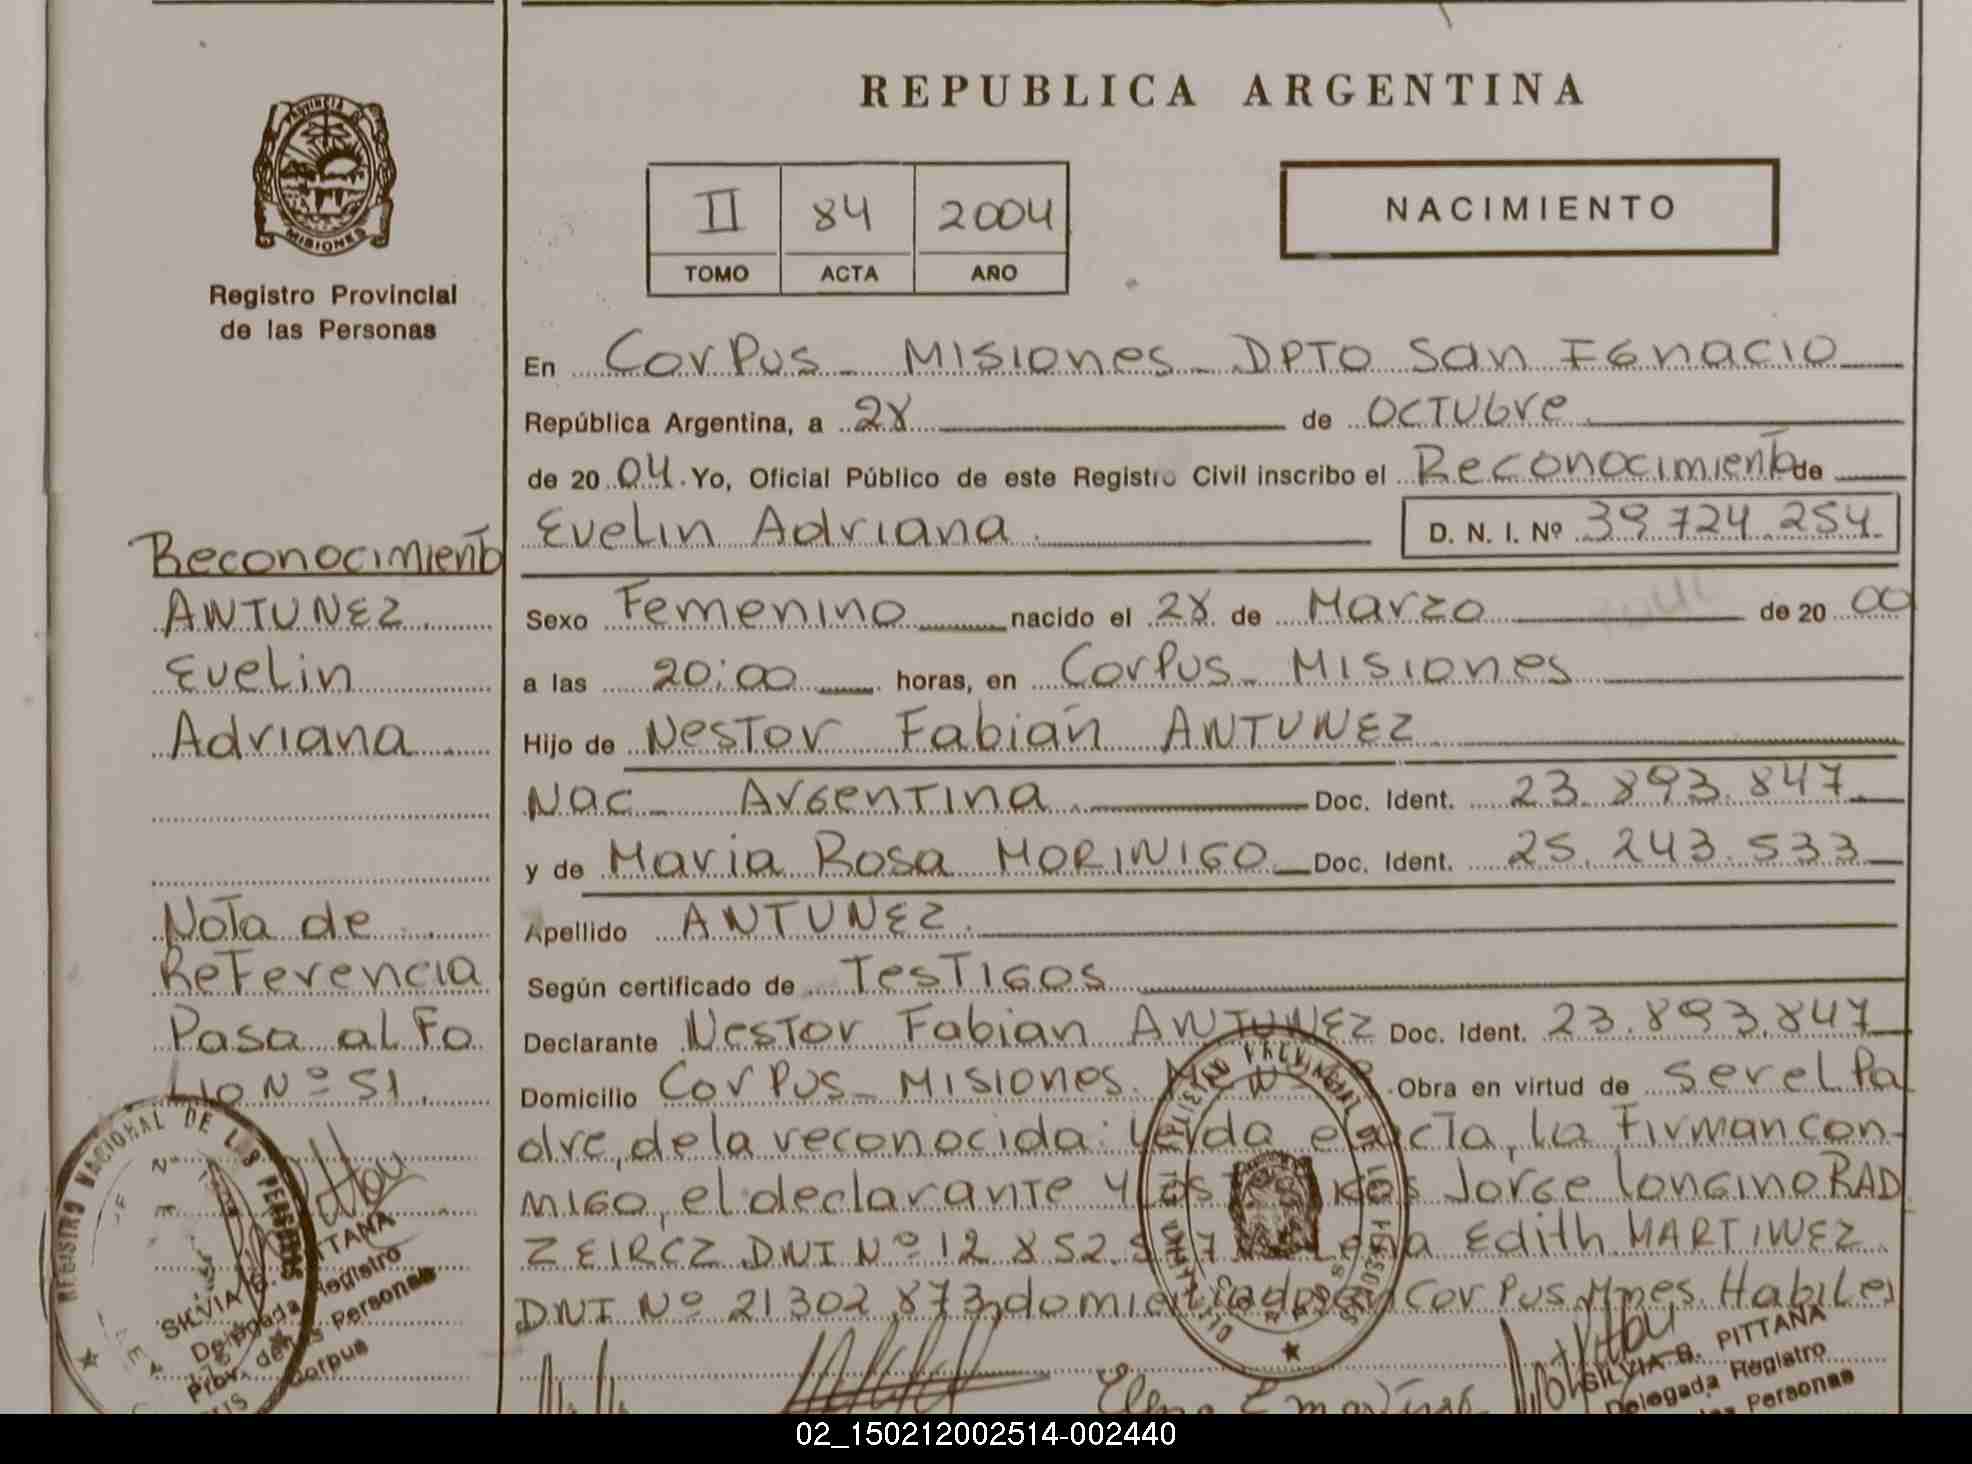 REPUBLICA ARGENTINA
PROVINCIA DE
MISIONES
Registro Provincial
de las Personas
II 84 2004
TOMO ACTA AÑO
NACIMIENTO
En Corpus - Misiones - DPTO San Ignacio
República Argentina, a 28 de Octubre
de 20 04. Yo, Oficial Público de este Registro Civil inscribo el Reconocimiento de
Evelin Adriana D. N. I. Nº 39.724.254
Sexo Femenino nacido el 28 de Marzo de 20 00
a las 20:00 horas, en Corpus - Misiones
Hijo de Nestor Fabián ANTUNEZ
Nac - Argentina Doc. Ident. 23.893.847
y de Maria Rosa MORINIGO Doc. Ident. 25.243.533
Apellido ANTUNEZ
Según certificado de Testigos
Declarante Nestor Fabian ANTUNEZ Doc. Ident. 23.893.847
Domicilio Corpus - Misiones. Obra en virtud de ser el Pa
dre, de la reconocida: Leida el acta, la Firman con-
migo, el declarante y los Jorge Longino RAD
ZEIRCZ DNI Nº 12.852. Elena Edith MARTINEZ
DNI Nº 21302.873, domiciliados en Corpus Mnes. Habiles
Elena E Martinez
SILVIA B. PITTANA
Delegada Registro
Personas
Reconocimiento
ANTUNEZ
Evelin
Adriana
Nota de
Referencia
Pasa al Fo
lio Nº 51.
REGISTRO NACIONAL DE LAS PERSONAS
SILVIA B. PITTANA
Delegada Registro
Prov. de las Personas
Corpus
02_150212002514-002440